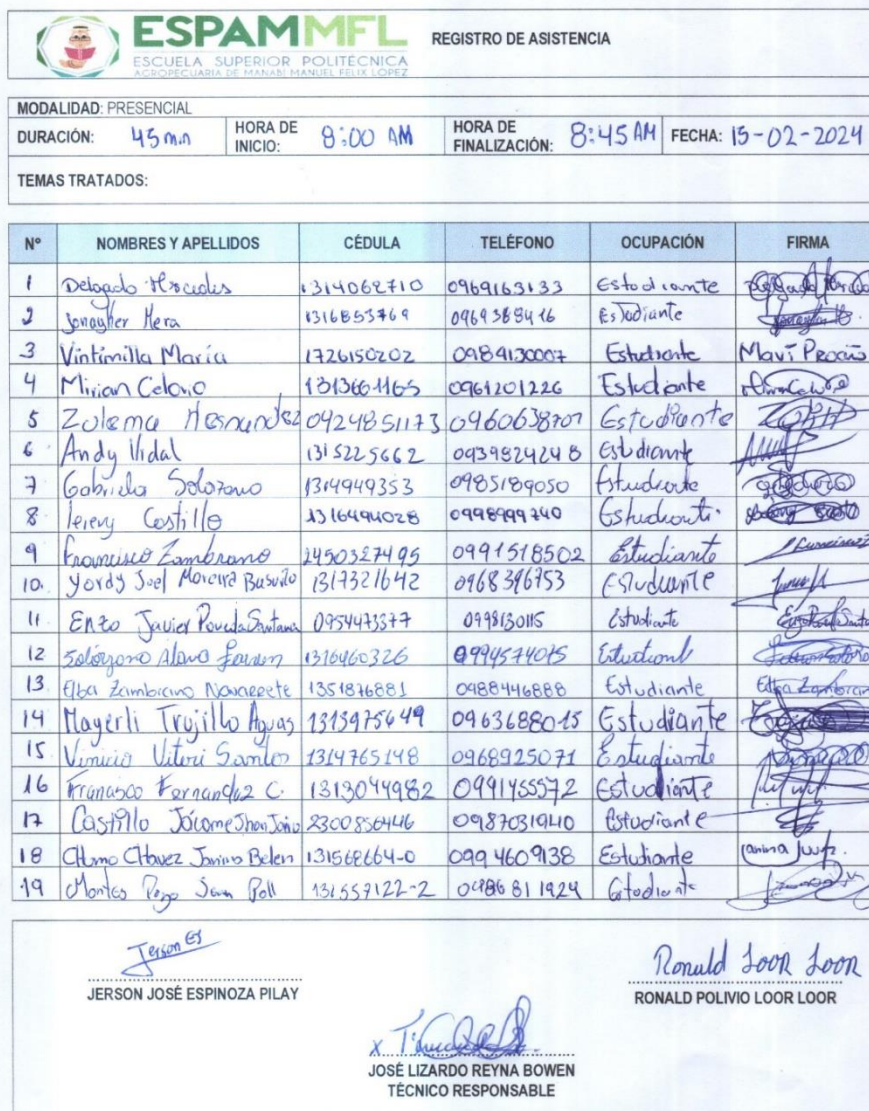 ESPAMMFL
ESCUELA SUPERIOR POLITÉCNICA
AGROPECUARIA DE MANABÍ MANUEL FÉLIX LÓPEZ
REGISTRO DE ASISTENCIA
MODALIDAD: PRESENCIAL
DURACIÓN: 45 min HORA DE INICIO: 8:00 AM HORA DE FINALIZACIÓN: 8:45 AM FECHA: 15-02-2024
TEMAS TRATADOS:
N° NOMBRES Y APELLIDOS CÉDULA TELÉFONO OCUPACIÓN FIRMA
1 Delgado Mercedes 1314062710 0969163133 Estudiante
2 Jonayker Mera 1316853769 Estudiante
3 Vintimilla María 1726150202 0984130007 Estudiante
4 Mirian Celorio 0961201226 Estudiante
5 Zulema Hernandez 0960638707 Estudiante
6 Andy Vidal 1315225662 0939824248 Estudiante
7 Gabriela Solorzano 1314949353 0985189050 Estudiante
8 Castillo 1316494028 0998999740 Estudiante
9 Francisco Zambrano 2450327495 0991518502 Estudiante
10. Yordy Joel Moreira 1317321642 0968396753 Estudiante
11 Enzo Javier Poveda Santana 0954473377 0998130115 Estudiante
12 Solórzano Alava 1316460326 0994574015
13 Elba Zambrano Navarrete 1351876881 0988446888 Estudiante Elba Zambrano
14 Mayerli Trujillo Aguas 1313975649 0963688015 Estudiante
15 Vinicio Viteri Santos 1314765148 0968925071 Estudiante
16 Francisco Fernandez C. 1313044982 0991455572 Estudiante
17 Castillo Jácome Jhon Jairo 2300856446 0987031940 Estudiante
18 Chumo Chavez Janina Belen 131568664-0 0994609138 Estudiante
19 Montes 131557122-2 0986811924 Estudiante
Jerson EJ
JERSON JOSÉ ESPINOZA PILAY
Ronald Loor Loor
RONALD POLIVIO LOOR LOOR
x
JOSÉ LIZARDO REYNA BOWEN
TÉCNICO RESPONSABLE